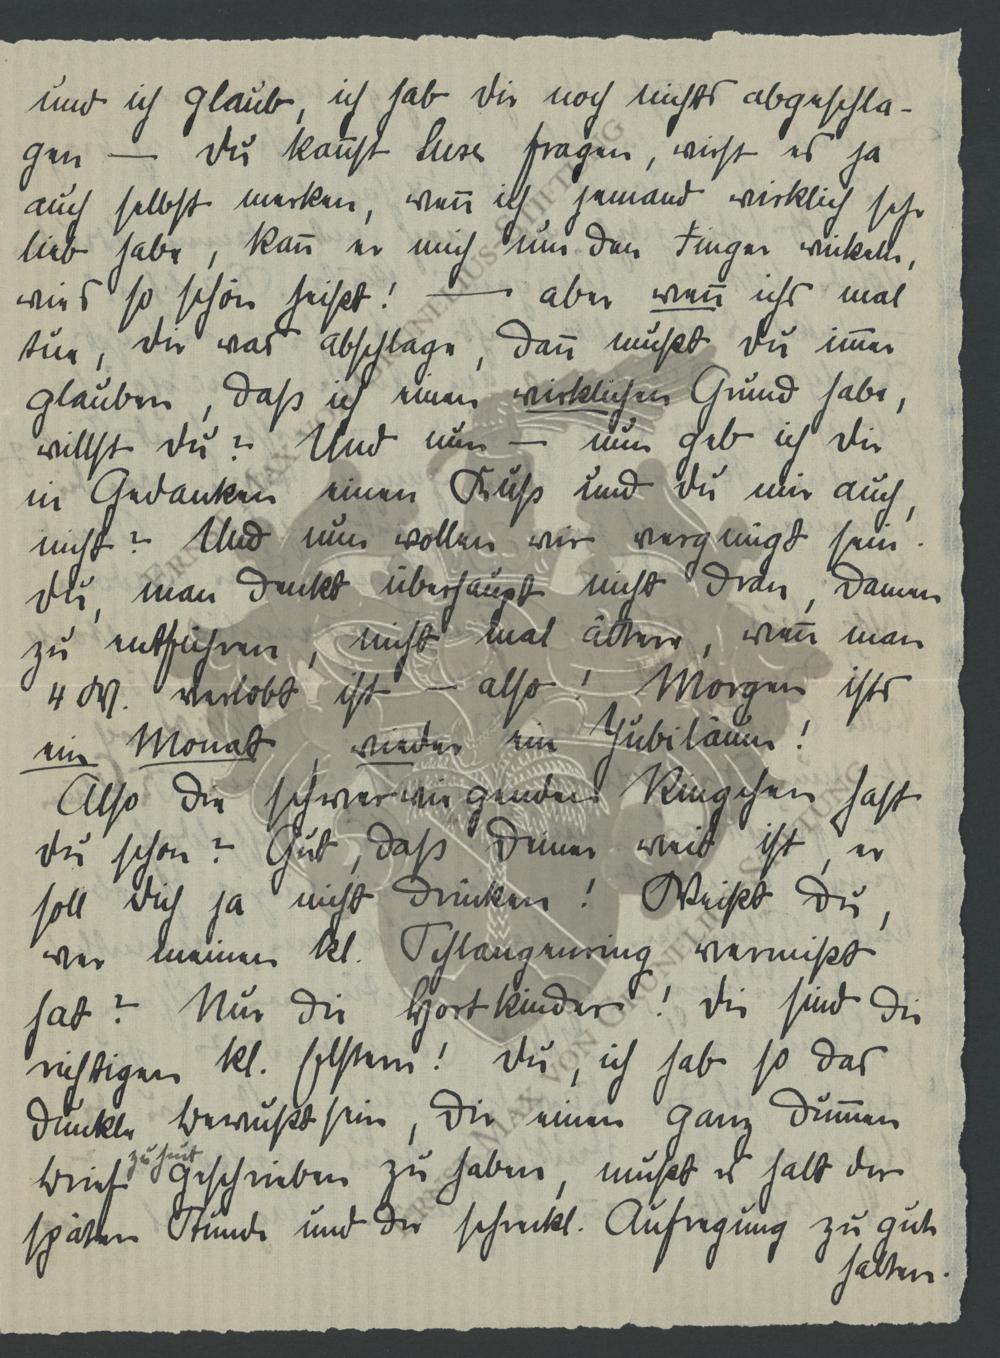 und ich glaub, ich hab dir noch nichts abgeschla-
gen — du kañst Suse fragen, wirst es ja
auch selbst merken, weñ ich jemand wirklich sehr
lieb habe, kañ er mich um den Finger wickeln,
wies so schön heißt! — aber weñ ichs mal
tue, dir was abschlage, dañ mußt du im̄er
glauben, daß ich einen wirklichen Grund habe,
willst du? Und nun — nun geb ich dir
in Gedanken einen Kuß und du mir auch,
nicht? Und nun wollen wir vergnügt sein.
Du, man denkt überhaupt nicht dran, Damen
zu entführen, nicht mal ältere, weñ man
4 W. verlobt ist — also! Morgen ists
ein Monat, wieder ein Jubiläum!
Also die schwerwiegenden Ringchen hast
du schon? Gut, daß deiner weit ist, er
soll dich ja nicht drücken! Weißt du,
wer meinen kl. Schlangenring vermißt
hat? Nur die Hortkinder! Die sind die
richtigen kl. Elstern! Du, ich hab so das
dunkle Bewußtsein, dir einen ganz dum̄en
Brief zu heut geschrieben zu haben, mußt es halt der
späten Stunde und der schreckl. Aufregung zu gute
halten.
ERNST MAX VON GRUNELIUS-STIFTUNG